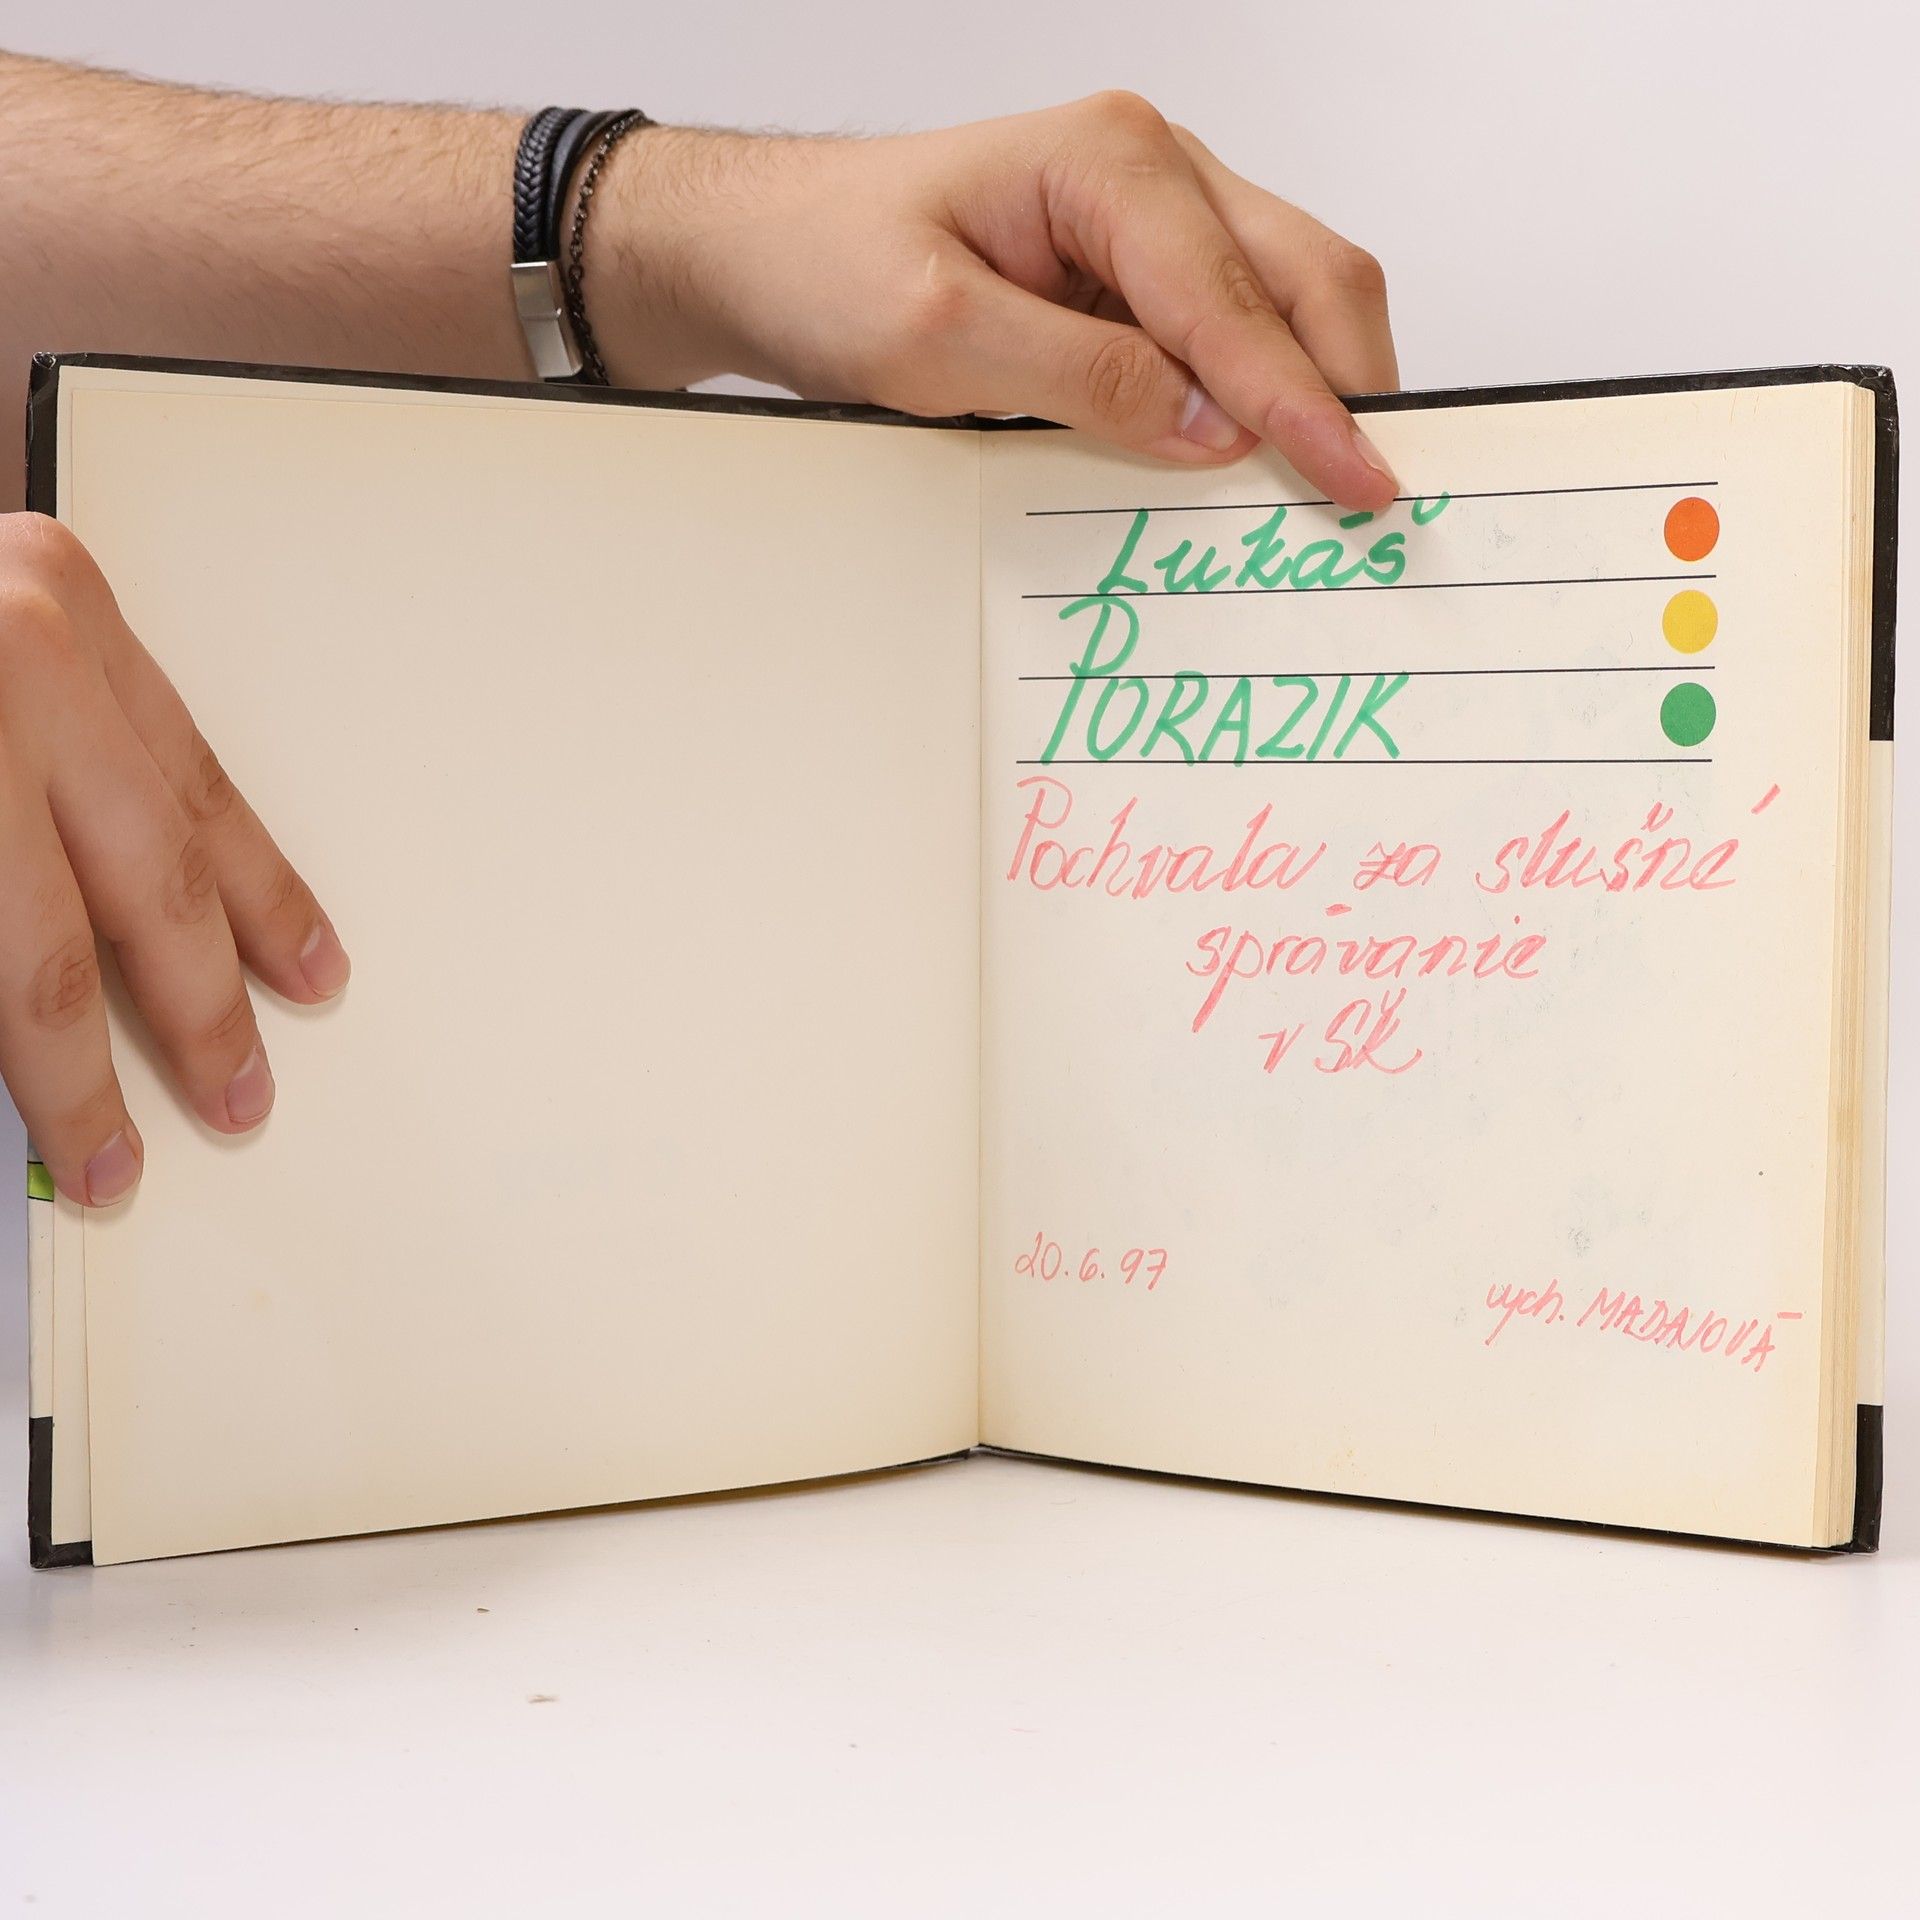 Lukáš
PORAZIK
Pochvala za slušné
správanie
v ŠK
20.6.97
vych. MADANOVÁ